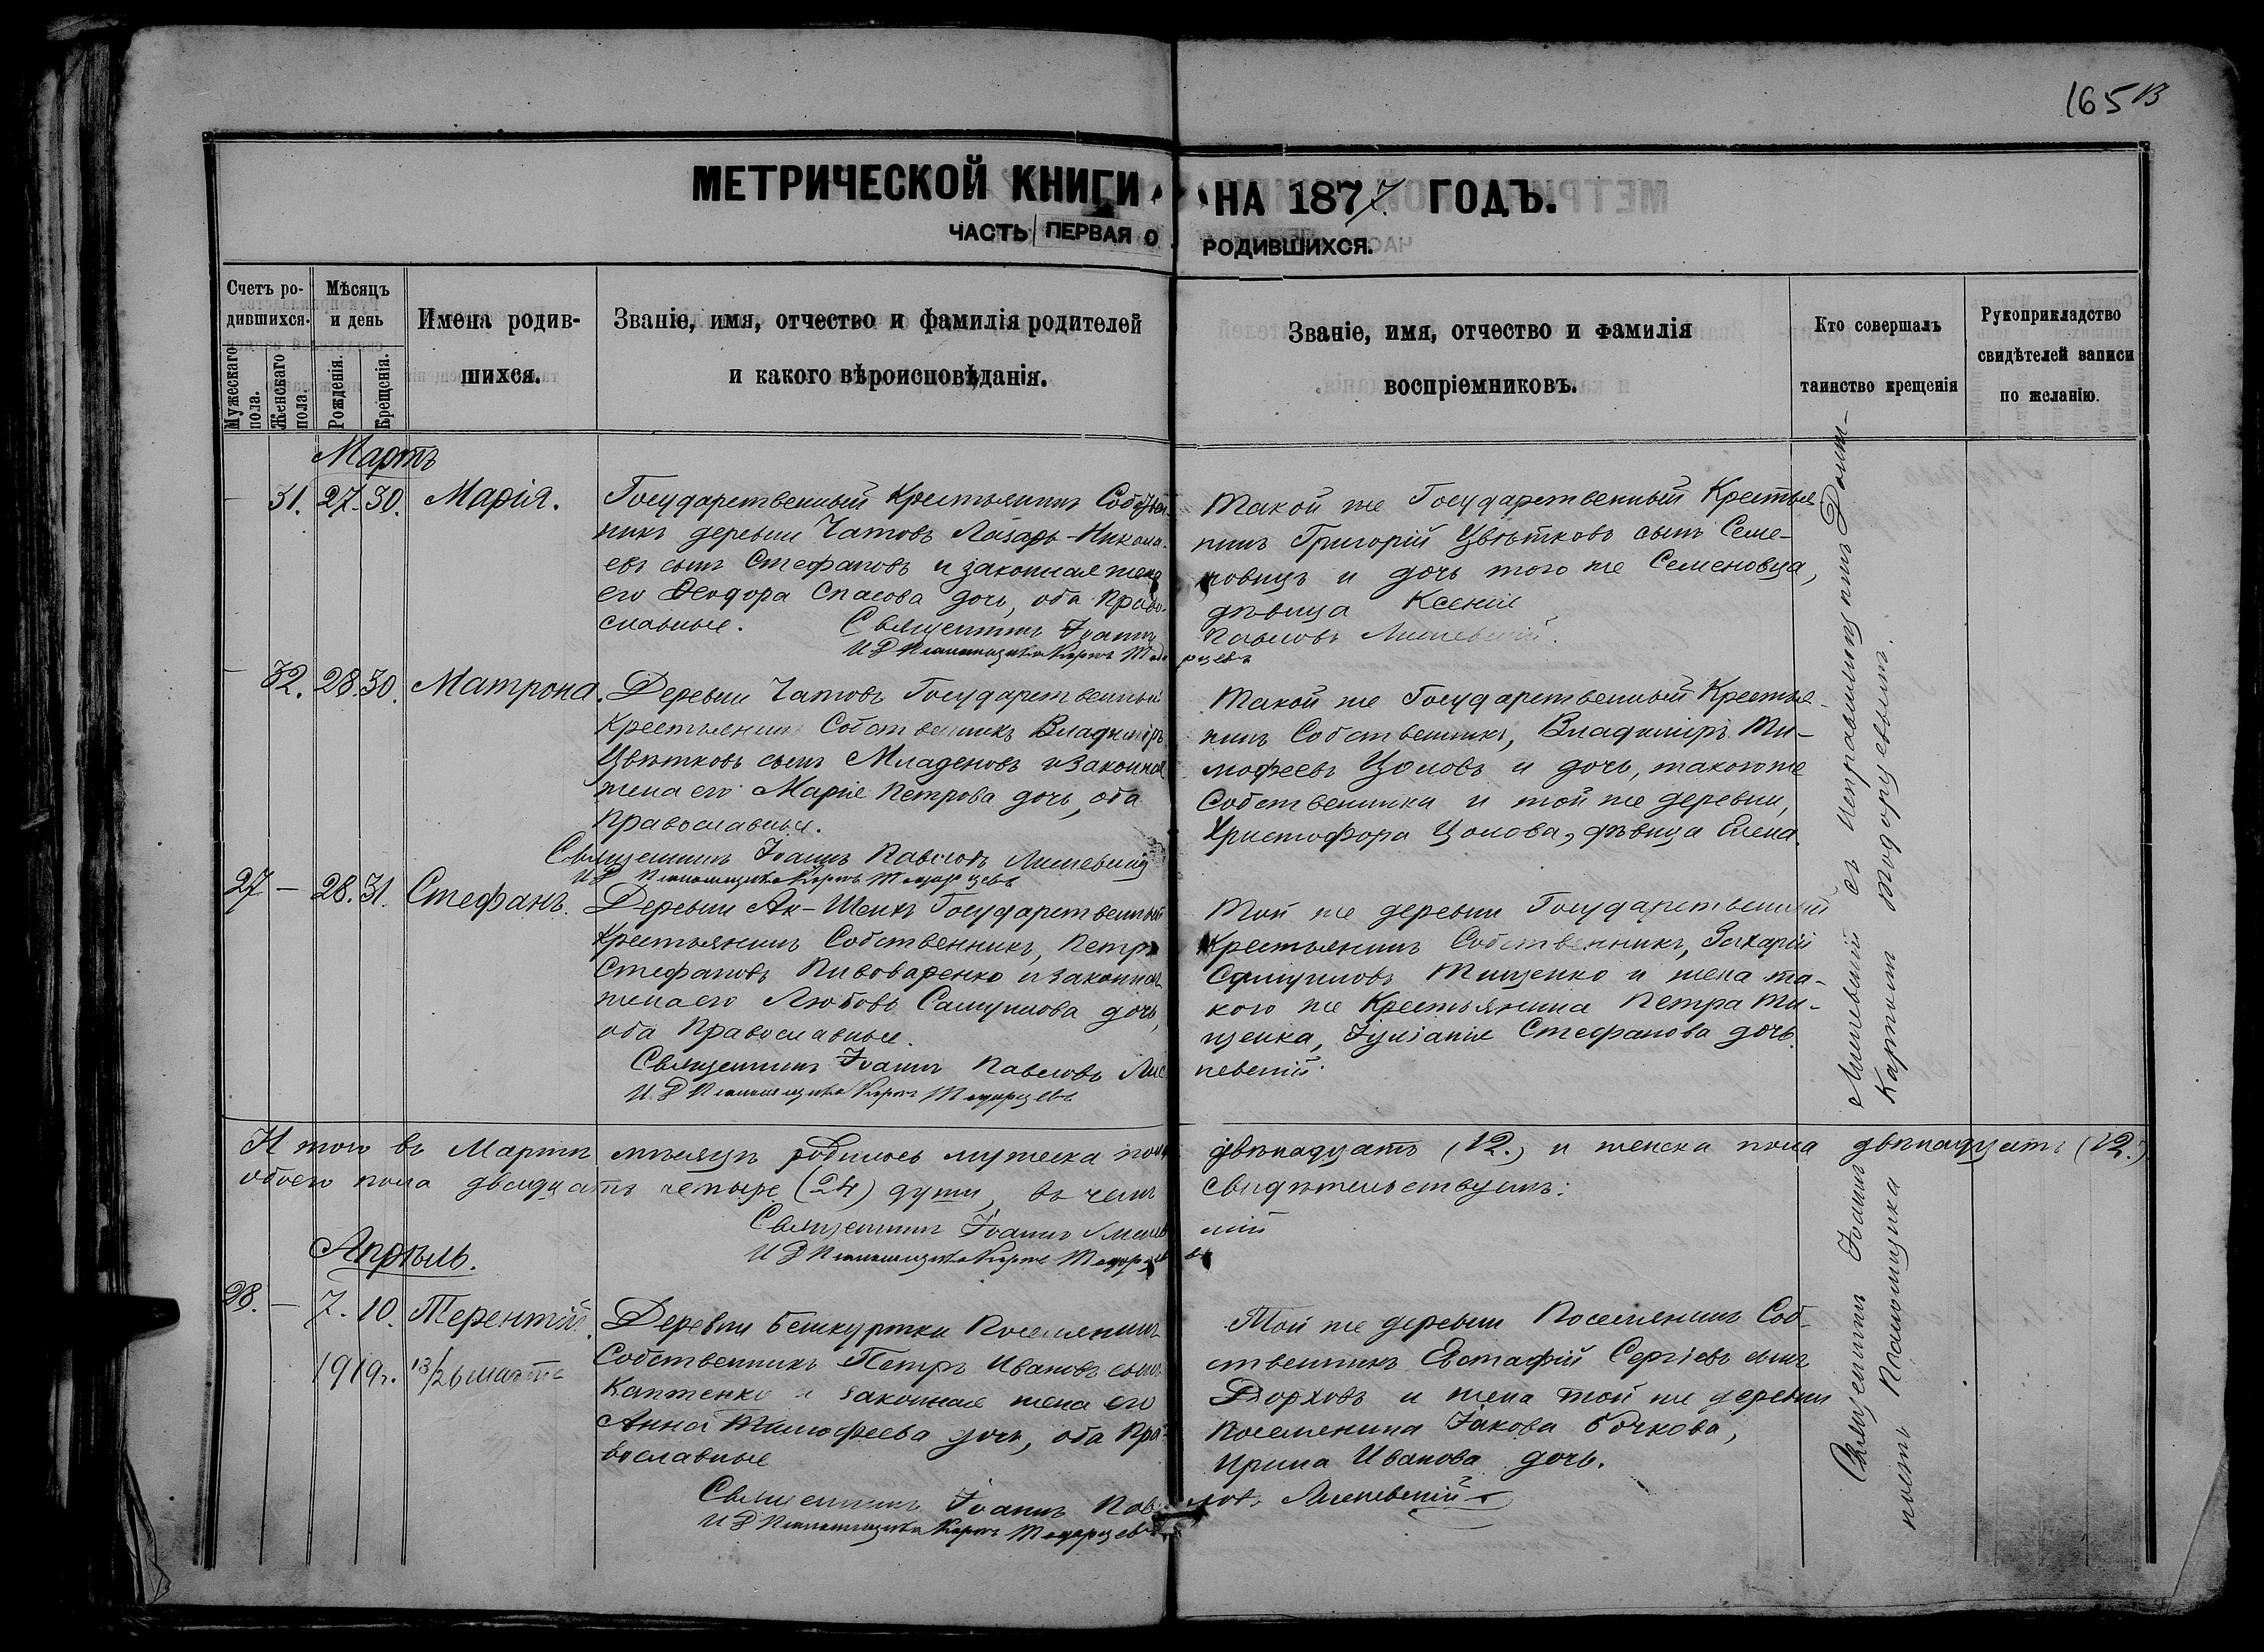 165 В
МЕТРИЧЕСКОЙ КНИГИ НА 1877 ГОДЪ.
ЧАСТЬ ПЕРВАЯ О РОДИВШИХСЯ.
Счетъ ро-
дившихся.
Мужескаго
пола.
Женскаго
пола.
Мѣсяцъ
и день
Рожденія.
Крещенія.
Имена родив-
шихся.
Званіе, имя, отчество и фамилія родителей
и какого вѣроисповѣданія.
Званіе, имя, отчество и фамилія
воспріемниковъ.
Кто совершалъ
таинство крещенія
Рукоприкладство
свидѣтелей записи
по желанію.
Мартъ
— 31. 27. 30. Марія.
Государственный Крестьянинъ Собствен-
никъ деревни Чатовъ Лазарь Никола-
евъ сынъ Стефановъ и законная жена
его Ѳеодора Спасова дочь, оба Право-
славные.
Такой же Государственный Крестья-
нинъ Григорій Цвѣтковъ сынъ Семе-
новицъ и дочь того же Семеновца,
дѣвица Ксенія
Священникъ Іоаннъ Павловъ
И Д Псаломщика Карпъ Тодорцевъ
— 32. 28. 30. Матрона.
Деревни Чатовъ Государственный
Крестьянинъ Собственникъ Владиміръ
Цвѣтковъ сынъ Младеновъ и законная
жена его Марія Петрова дочь, оба
Православные.
Такой же Государственный Крестья-
нинъ Собственникъ, Владиміръ Ти-
мофеевъ Цоловъ и дочь, такого же
Собственника и той же деревни,
Христофора Цолова, дѣвица Елена.
Священникъ Іоаннъ Павловъ
И Д Псаломщика Карпъ Тодорцевъ
27 — 28. 31. Стефанъ.
Деревни Ак-Шеихъ Государственный
Крестьянинъ Собственникъ, Петръ
Стефановъ Пивоваренко и законная
жена его Любовь Самуилова дочь,
оба Православные.
Той же деревни Государственный
Крестьянинъ Собственникъ, Захарій
Самуиловъ Тищенко и жена та-
кого же Крестьянина Петра Ти-
щенка, Іуліанія Стефанова дочь.
Священникъ Іоаннъ Павловъ
И. Д Псаломщика Карпъ Тодорцевъ
Итого въ Мартѣ мѣсяцѣ родилось мужеска пола двѣнадцать (12.) и женска пола двѣнадцать (12.)
обоего пола двадцать четыре (24) души, въ чемъ свидѣтельствуемъ:
Священникъ Іоаннъ
И Д Псаломщика Карпъ Тодорцевъ
Апрѣль.
28. — 7. 10. Терентій.
1919г. 13/26 марта
Деревни Бешкуртки Поселянинъ
Собственникъ Петръ Ивановъ сынъ
Каптенко и законная жена его
Анна Тимофеева дочь, оба Пра-
вославные
Той же деревни Поселянинъ Соб-
ственникъ Евстафій Сергіевъ сынъ
Дорховъ и жена той же деревни
Поселянина Іакова Бочкова,
Ирина Иванова дочь.
Священникъ Іоаннъ Павловъ
И Д Псаломщика Карпъ Тодорцевъ
Священникъ Іоаннъ съ исправляющимъ долж-
ность Псаломщика Карпомъ Тодорцевымъ.